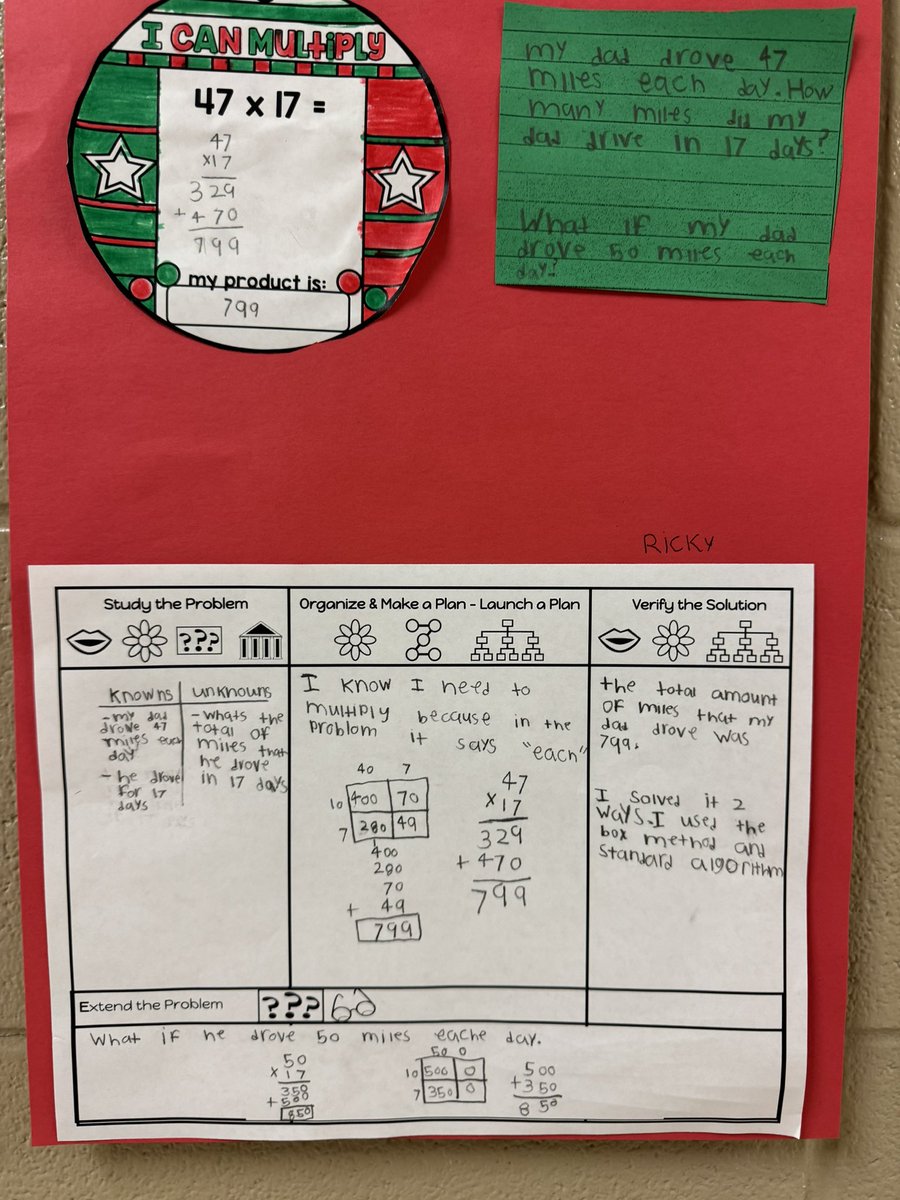 I CAN MULtiPLY
47 x 17 =
47
x17
329
+470
799
my product is:
799
my dad drove 47
miles each day. How
many miles did my
dad drive in 17 days?
What if my dad
drove 50 miles each
day?
RiCKY
Study the Problem
???
knowns
-my dad
drove 47
miles each
day
- he drove
for 17
days
unknouns
-whats the
total of
miles that
he drove
in 17 days
Organize & Make a Plan - Launch a Plan
I know I need to
multiply because in the
problem it says "each"
40 7
10 400 70
7 280 49
400
280
70
+ 49
799
47
x17
329
+ 470
799
Verify the Solution
the total amount
of miles that my
dad drove was
799.
I solved it 2
ways. I used the
box method and
standard algorithm
Extend the Problem
???
What if he drove 50 miles eache day.
50
x 17
350
+500
850
50 0
10 500 0
7 350 0
500
+350
850